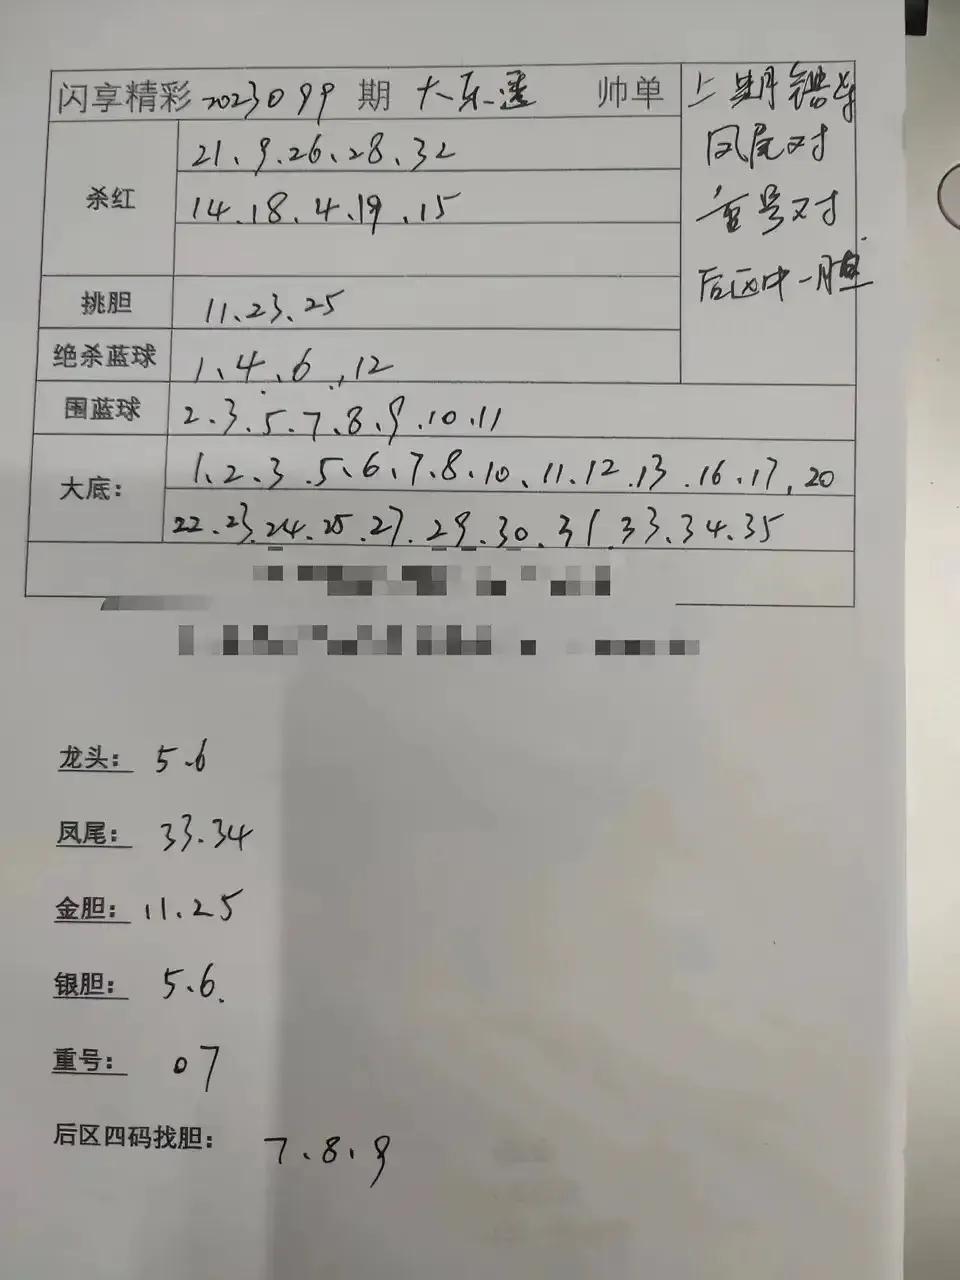 闪享精彩 2023099 期 大乐透 帅单
上期错号
凤尾对
重号对
后区中一胆
杀红
21、9.26.28、32
14.18.4.19.15
挑胆
11.23.25
绝杀蓝球
1、4、6、12
围蓝球
2.3.5.7.8.9.10.11
大底：
1、2.3.5、6.7.8.10、11.12.13.16.17.20
22.23.24.25.27.29.30.31.33.34.35
龙头： 5.6
凤尾： 33.34
金胆： 11.25
银胆： 5.6.
重号： 07
后区四码找胆： 7、8、9